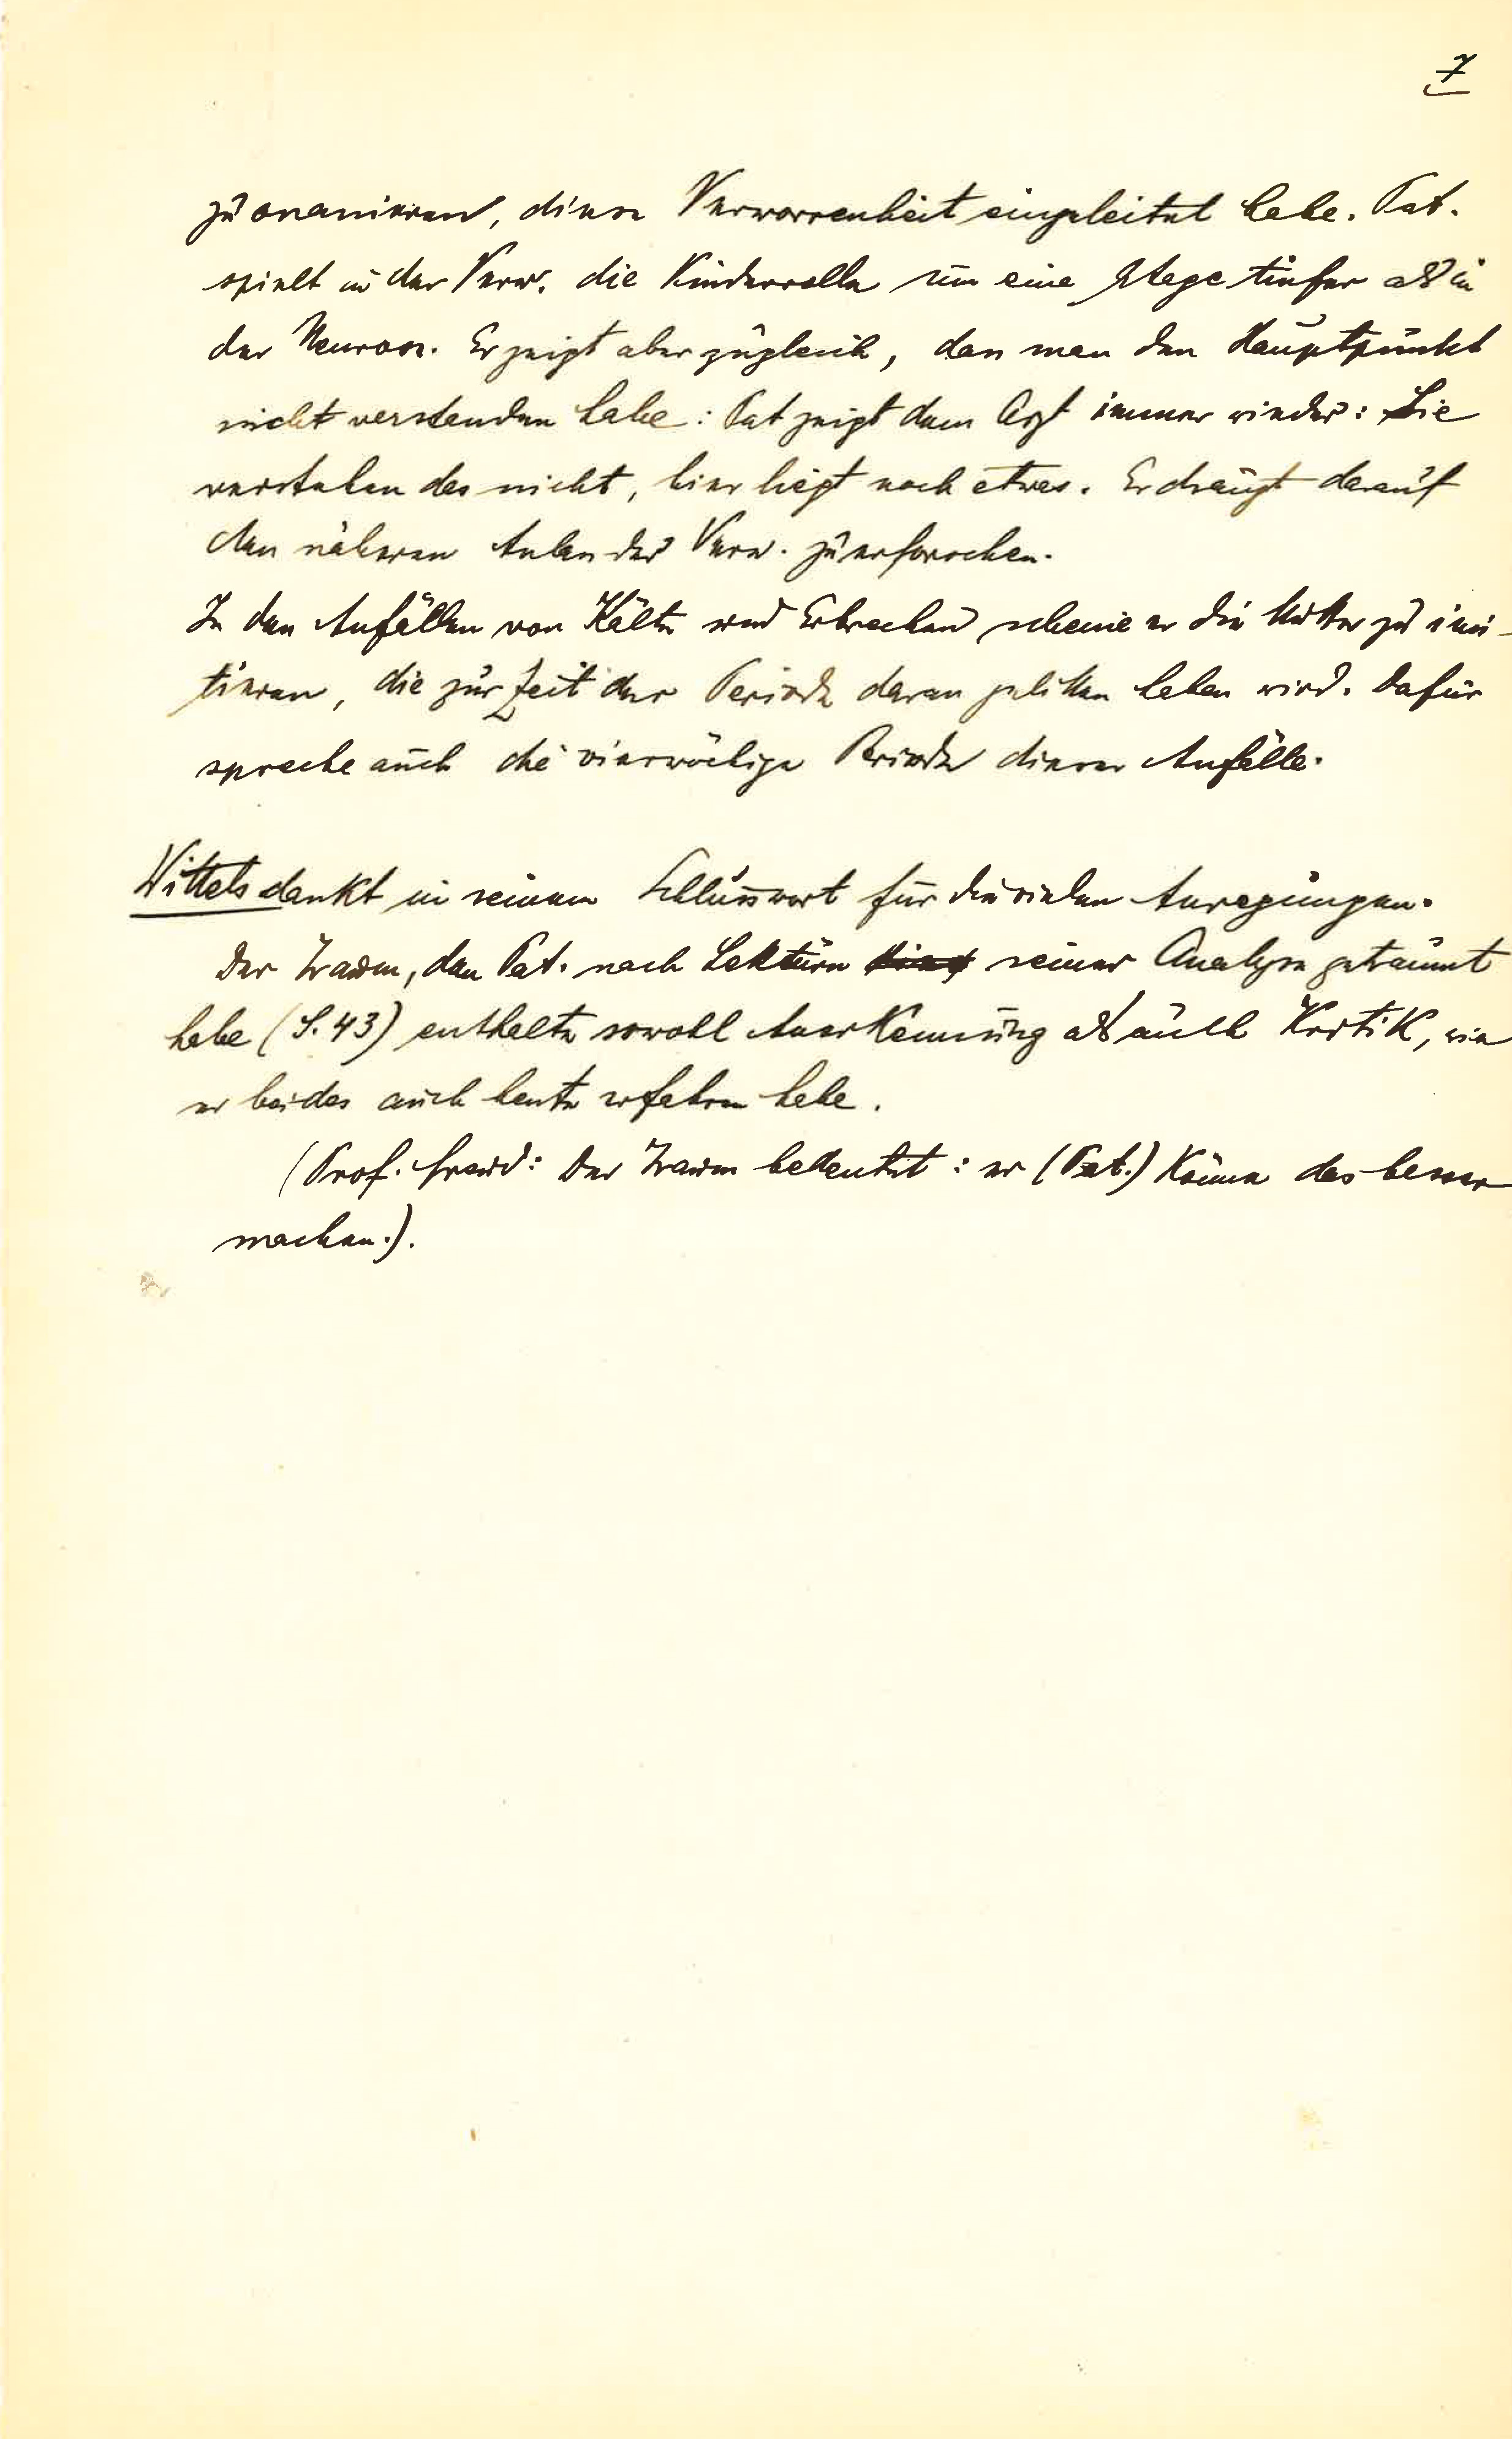 7
zu onanieren, diese Verworrenheit eingeleitet habe. Pat.
spielt in der Verw. die Kinderrolle um eine Etage tiefer als in
der Neurose. Er zeigt aber zugleich, dass man den Hauptpunkt
nicht verstanden habe: Pat zeigt dem Arzt immer wieder: Sie
verstehen das nicht, hier liegt noch etwas. Er drängt darauf
den näheren Anlass der Verw. zu erforschen.
In den Anfällen von Kälte und Erbrechen scheine er die Mutter zu imi-
tieren, die zur Zeit der Periode daran gelitten haben wird. Dafür
spreche auch die vierwöchige Periode dieser Anfälle.
Wittels dankt in seinem Schlusswort für die vielen Anregungen.
Der Traum, den Pat. nach Lektüre seiner Analyse geträumt
habe (S. 43) enthalte sowohl Anerkennung als auch Kritik, wie
er beides auch heute erfahren habe.
(Prof. Freud: Der Traum bedeutet: er (Pat.) könne das besser
machen.).